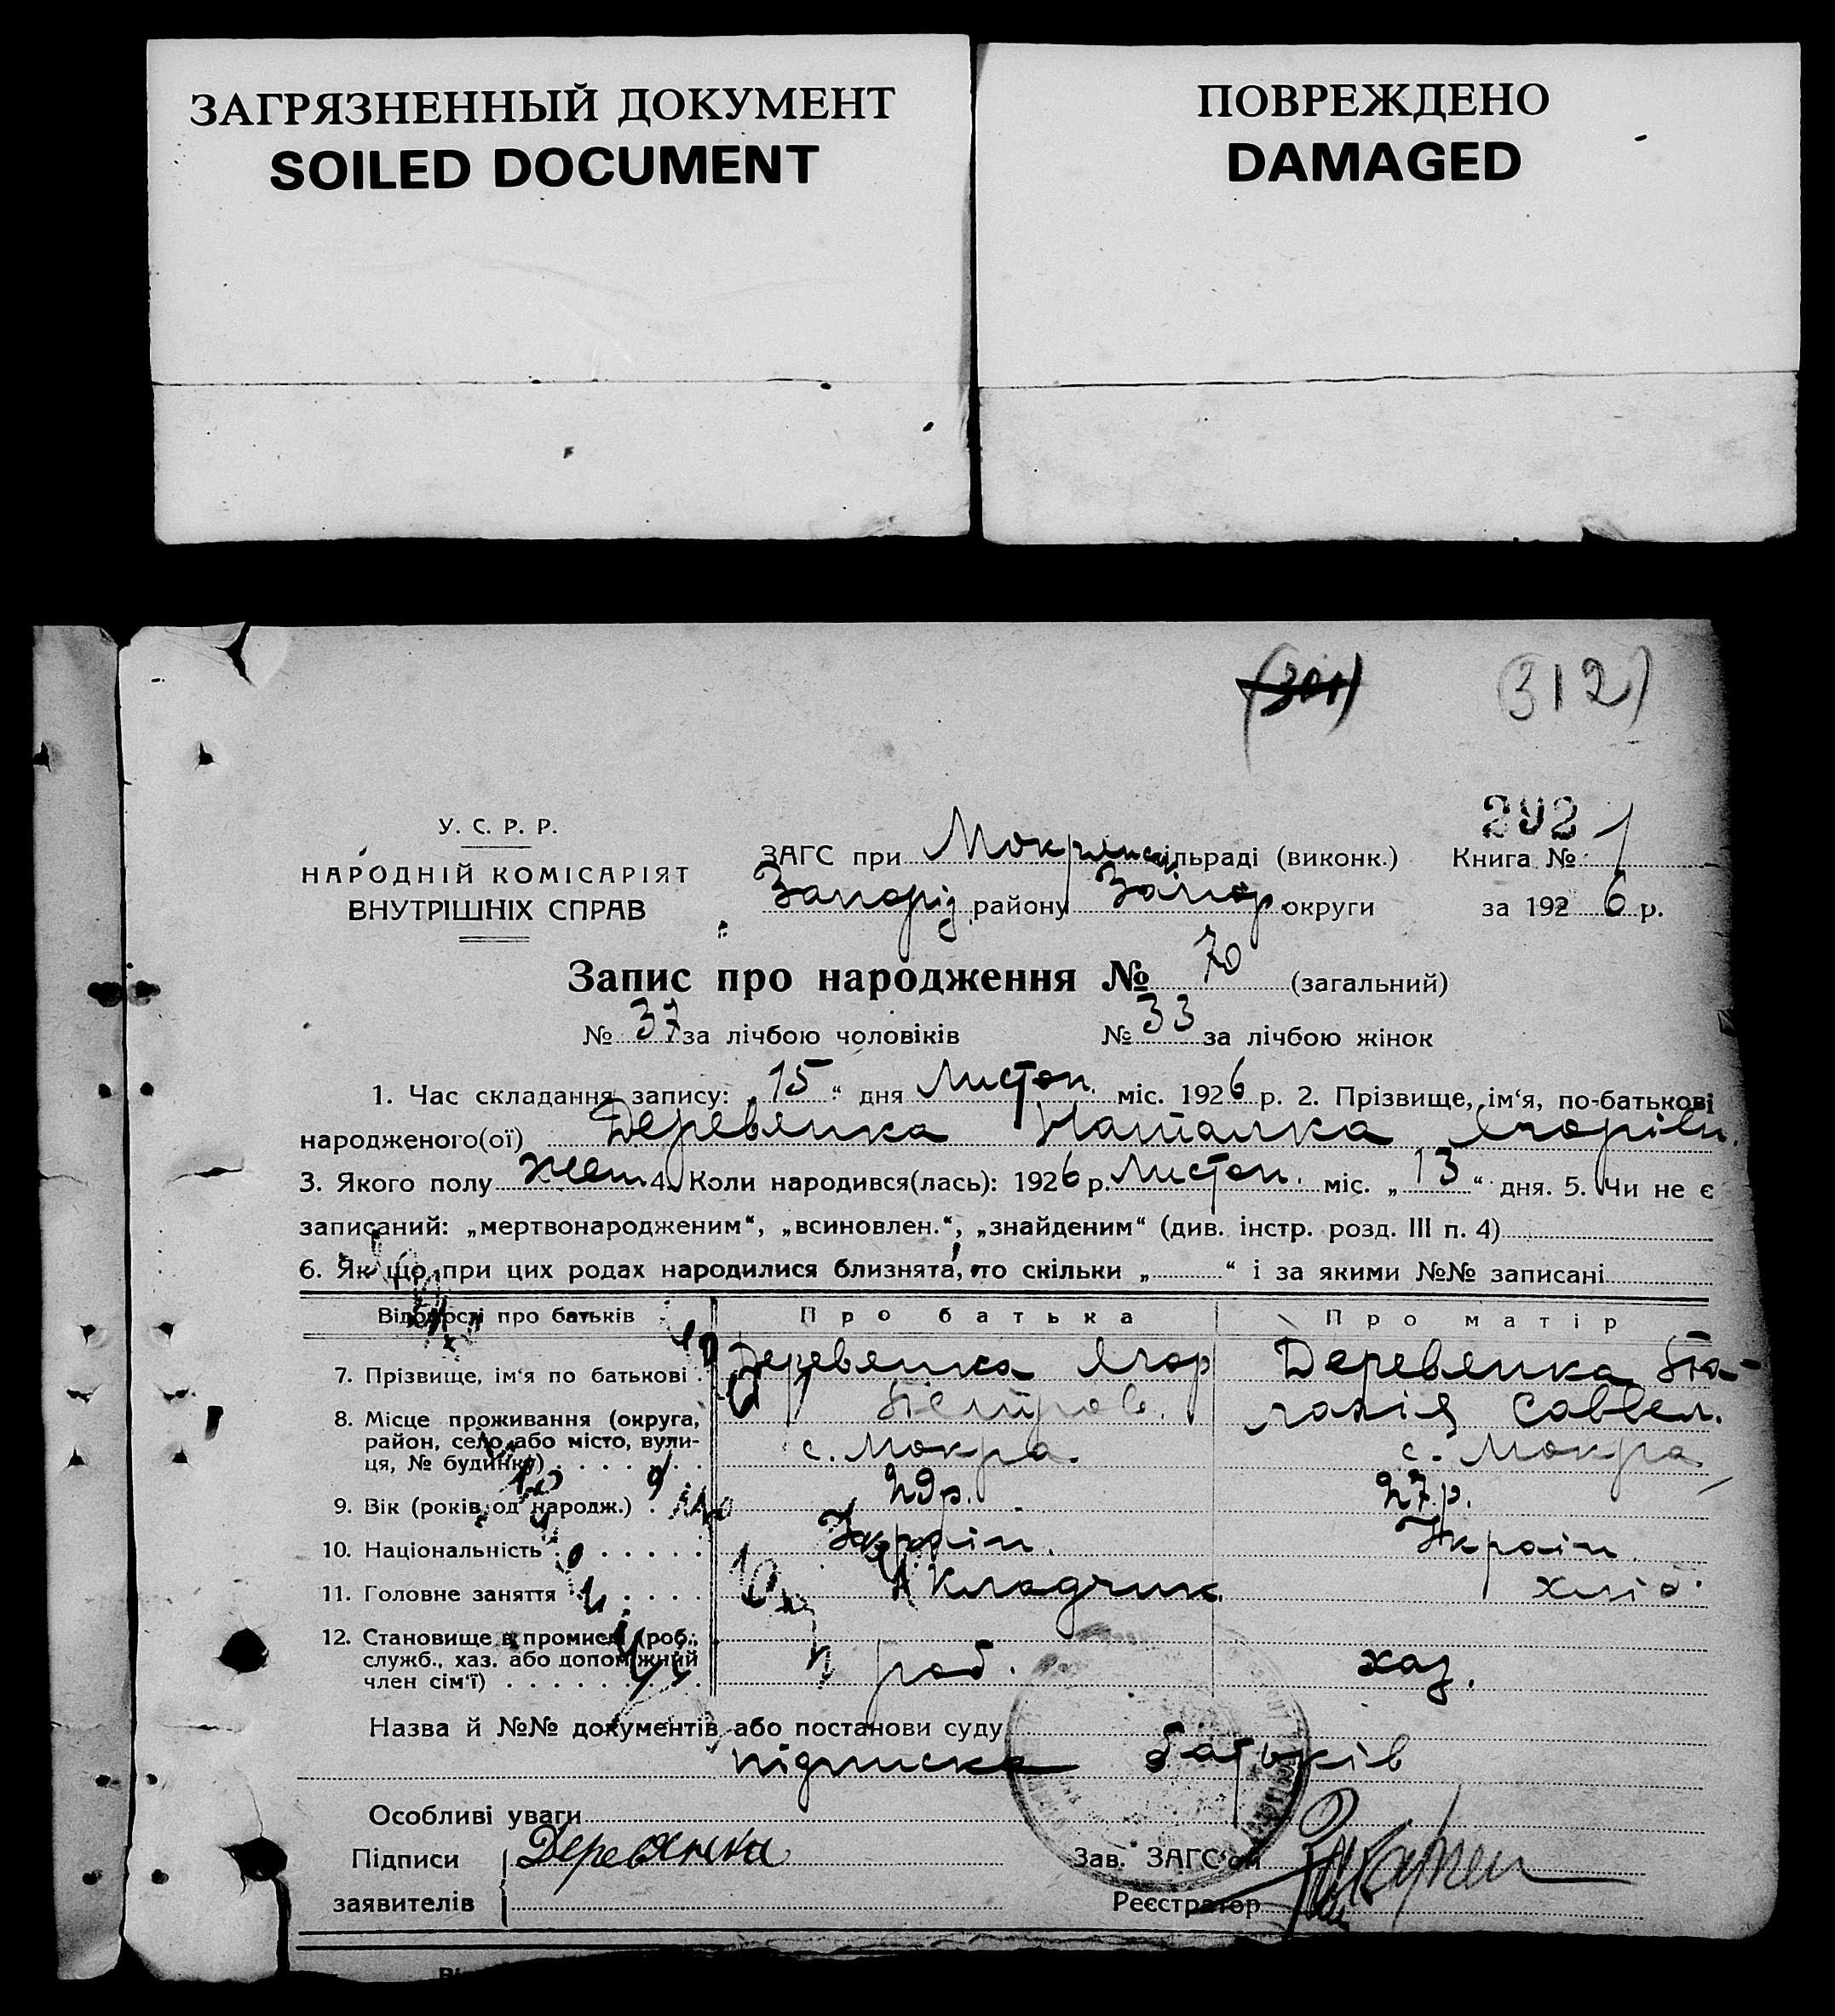 ЗАГРЯЗНЕННЫЙ ДОКУМЕНТ
SOILED DOCUMENT
ПОВРЕЖДЕНО
DAMAGED
(301) (312)
292
У. С. Р. Р.
НАРОДНІЙ КОМІСАРІЯТ
ВНУТРІШНІХ СПРАВ
ЗАГС при Мокрянськ сільраді (виконк.) Книга № 1
Запоріз. району Запор. округи за 1926 р.
Запис про народження № 70 (загальний)
№ 37 за лічбою чоловіків № 33 за лічбою жінок
1. Час складання запису: „15“ дня Листоп. міс. 1926 р. 2. Прізвище, ім'я, по-батькові
народженого(ої) Деревянка Наталка Ягорівн.
3. Якого полу жен 4. Коли народився(лась): 1926 р. Листоп. міс. „13“ дня. 5. Чи не є
записаний: „мертвонародженим“, „всиновлен.“, „знайденим“ (див. інстр. розд. III п. 4)
6. Як що при цих родах народилися близнята, то скільки „ “ і за якими №№ записані
Відомості про батьків Про батька Про матір
7. Прізвище, ім'я по батькові Деревянка Ягор Петров. Деревянка Палажія Саввел.
8. Місце проживання (округа,
район, село або місто, вули-
ця, № будинку) с. Мокра. с. Мокра
9. Вік (років од народж.) 29 р. 27 р.
10. Національність Україн. Україн.
11. Головне заняття Укладчик. хліб.
12. Становище в промислі (роб.,
служб., хаз. або допоміжний
член сім'ї) роб. хаз.
Назва й №№ документів або постанови суду
підписка батьків
Особливі уваги
Підписи Деревянка Зав. ЗАГС'ом
заявителів Реєстратор